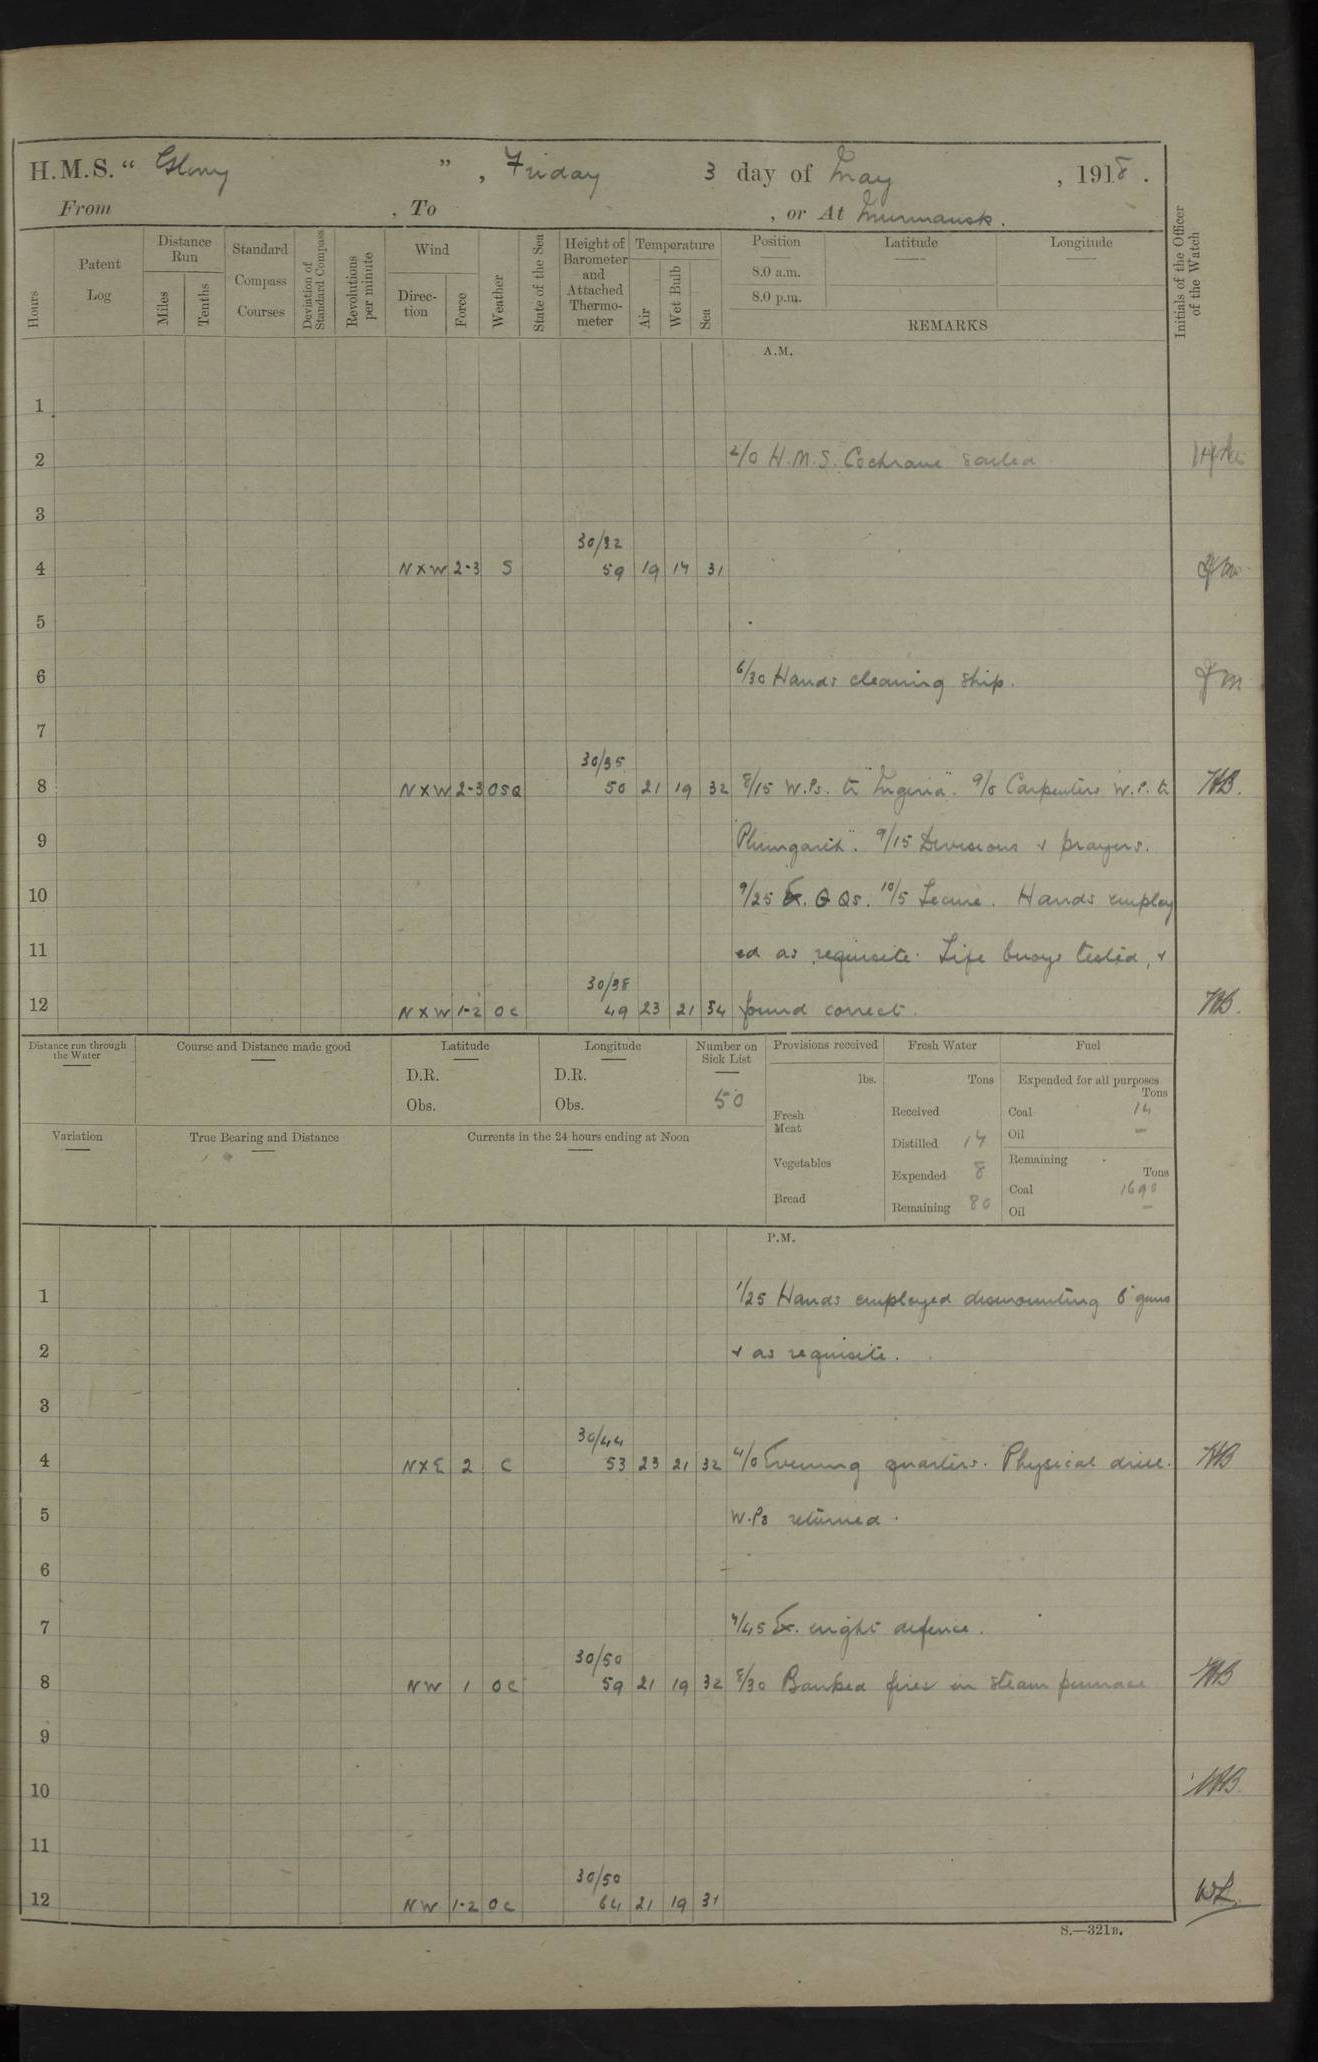 H.M.S. " Glory ", Friday 3 day of May, 1918.
From , To , or At Murmansk.
Hours
Patent Log
Distance Run
Miles
Tenths
Standard Compass Courses
Deviation of Standard Compass
Revolutions per minute
Wind
Direction
Force
Weather
State of the Sea
Height of Barometer and Attached Thermometer
Temperature
Air
Wet Bulb
Sea
Position
8.0 a.m.
8.0 p.m.
Latitude
Longitude
REMARKS
Initials of the Officer of the Watch
A.M.
1
2 2/0 H.M.S. Cochrane sailed
3
30/32
4 NXW 2-3 S 59 19 17 31
5
6 6/30 Hands cleaning ship.
7
30/35
8 NXW 2-3 OSQ 50 21 19 32 8/15 W.Ps. to "Ingeria". 9/0 Carpenters W.P. to HB.
9 "Plumgarth". 9/15 Divisions & prayers.
10 9/25 Ex. G Qs. 10/5 Secure. Hands employ
11 ed as requisite. Life buoys tested, &
30/38
12 NXW 1-2 OC 49 23 21 34 found correct. HB.
Distance run through the Water
Course and Distance made good
Latitude
D.R.
Obs.
Longitude
D.R.
Obs.
Number on Sick List
50
Provisions received
lbs.
Fresh Meat
Vegetables
Bread
Fresh Water
Tons
Received
Distilled 14
Expended 8
Remaining 80
Fuel
Expended for all purposes
Tons
Coal 14
Oil –
Remaining
Tons
Coal 1690
Oil –
Variation
True Bearing and Distance
Currents in the 24 hours ending at Noon
P.M.
1 1/25 Hands employed dismounting 6" guns
2 & as requisite.
3
30/44
4 NXE 2 C 53 23 21 32 4/0 Evening quarters. Physical drill. HB
5 W.Ps returned.
6
7 7/45 Ex. night defence.
30/50
8 NW 1 OC 59 21 19 32 8/30 Banked fires in steam pinnace HB
9
10 HB.
11
30/50
12 NW 1-2 OC 64 21 19 31 WL
S.—321B.